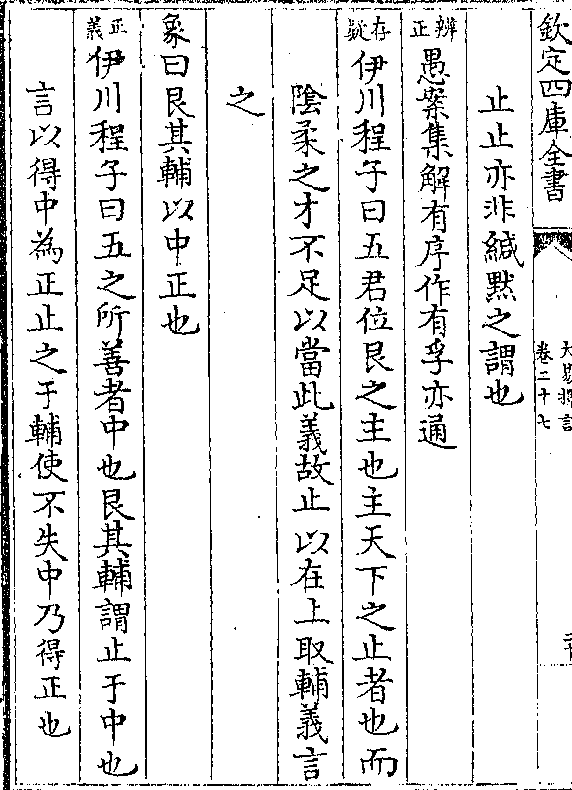 欽定四庫全書
大易擇言
卷二十七
止止亦非緘默之謂也
辨正
愚案集解有序作有孚亦通
存疑
伊川程子曰五君位艮之主也主天下之止者也而
陰柔之才不足以當此義故止以在上取輔義言
之
象曰艮其輔以中正也
正義
伊川程子曰五之所善者中也艮其輔謂止于中也
言以得中為正止之于輔使不失中乃得正也